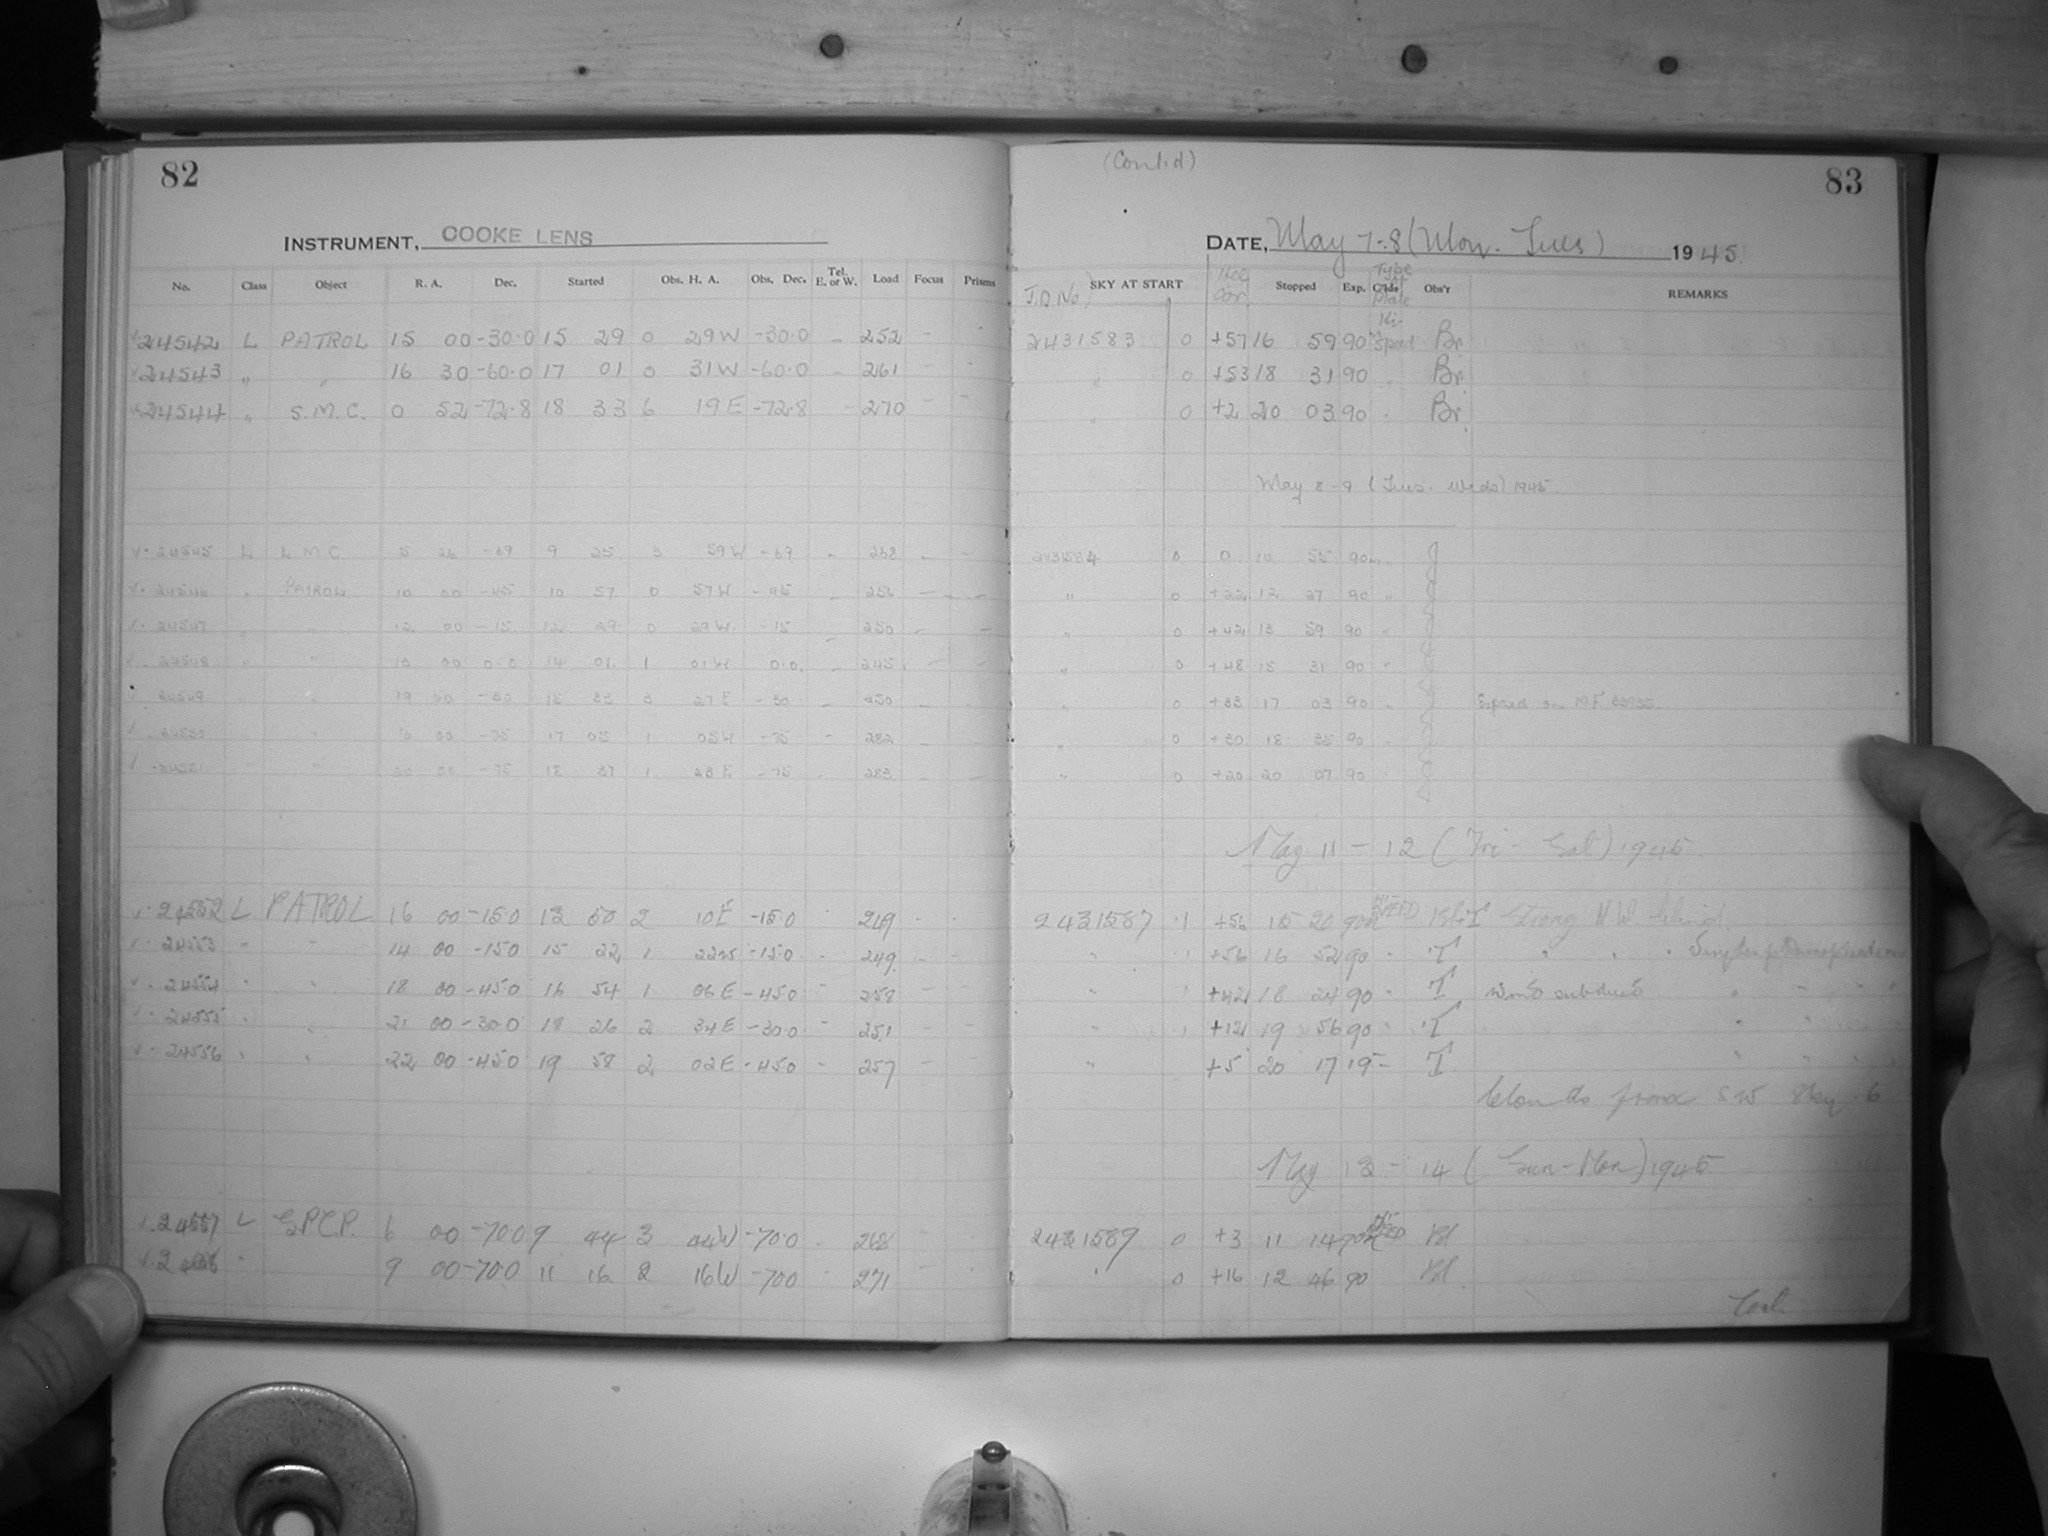 82
INSTRUMENT, COOKE LENS
No. Class Object R. A. Dec. Started Obs. H. A. Obs. Dec. Tel. E. or W. Load Focus Prisms
24542 L PATROL 15 00 -30.0 15 29 0 29W -30.0 - 252 - -
24543 " " 16 30 -60.0 17 01 0 31W -60.0 - 261 - -
24544 " S.M.C. 0 52 -72.8 18 33 6 19E -72.8 - 270 - -
24545 L L.M.C. 5 26 -69 9 25 3 59W -69 - 268 - -
24546 " PATROL 10 00 -45 10 57 0 57W -45 - 256 - -
24547 " " 12 00 -15 12 29 0 29W -15 - 250 - -
24548 " " 13 00 0.0 14 01 1 01W 0.0 - 245 - -
24549 " " 19 00 -30 15 33 3 27E -30 - 250 - -
24550 " " 16 00 -75 17 05 1 05W -75 - 282 - -
24551 " " 20 00 -75 18 37 1 23E -75 283 - -
24552 L PATROL 16 00 -15.0 13 50 2 10E -15.0 249 - -
24553 " " 14 00 -15.0 15 22 1 22W -15.0 - 249 - -
24554 " " 18 00 -45.0 16 54 1 06E -45.0 - 258 - -
24555 " " 21 00 -30.0 18 26 2 34E -30.0 - 251 - -
24556 " " 22 00 -45.0 19 58 2 02E -45.0 - 257 - -
24557 L S.P.C.P. 6 00 -70.0 9 44 3 44W -70.0 - 268 - -
" 9 00 -70.0 11 16 2 16W -70.0 271
(Contd)
83
DATE, May 7-8 (Mon. Tues) 1945.
J.D. No. SKY AT START Hel. Corr. Stopped Exp. Type of Plate Obs'r REMARKS
2431583 0 +57 16 59 90 Hi-speed Br.
" 0 +53 18 31 90 " Br.
" 0 +2 20 03 90 " Br.
May 8-9 (Tues. Weds) 1945.
2431584 0 0 10 55 90 "
" 0 +22 12 27 90 "
" 0 +42 13 59 90 "
" 0 +48 15 31 90 "
" 0 +33 17 03 90 "
" 0 +30 18 35 90 "
" 0 +20 20 07 90 "
May 11 - 12 (Fri - Sat) 1945.
2431587 1 +56 15 20 90 Strong N.W. Wind.
" 1 +56 16 52 90 " T " " "
" 1 +42 18 24 90 " T Wind subdued " " "
" 1 +12 19 56 90 " T " "
" +5 20 17 19 - T " " "
Clouds from SW Sky 6
May 13 - 14 (Sun - Mon) 1945
2431589 0 +3 11 14 90 Bl
" 0 +16 12 46 90 Bl.